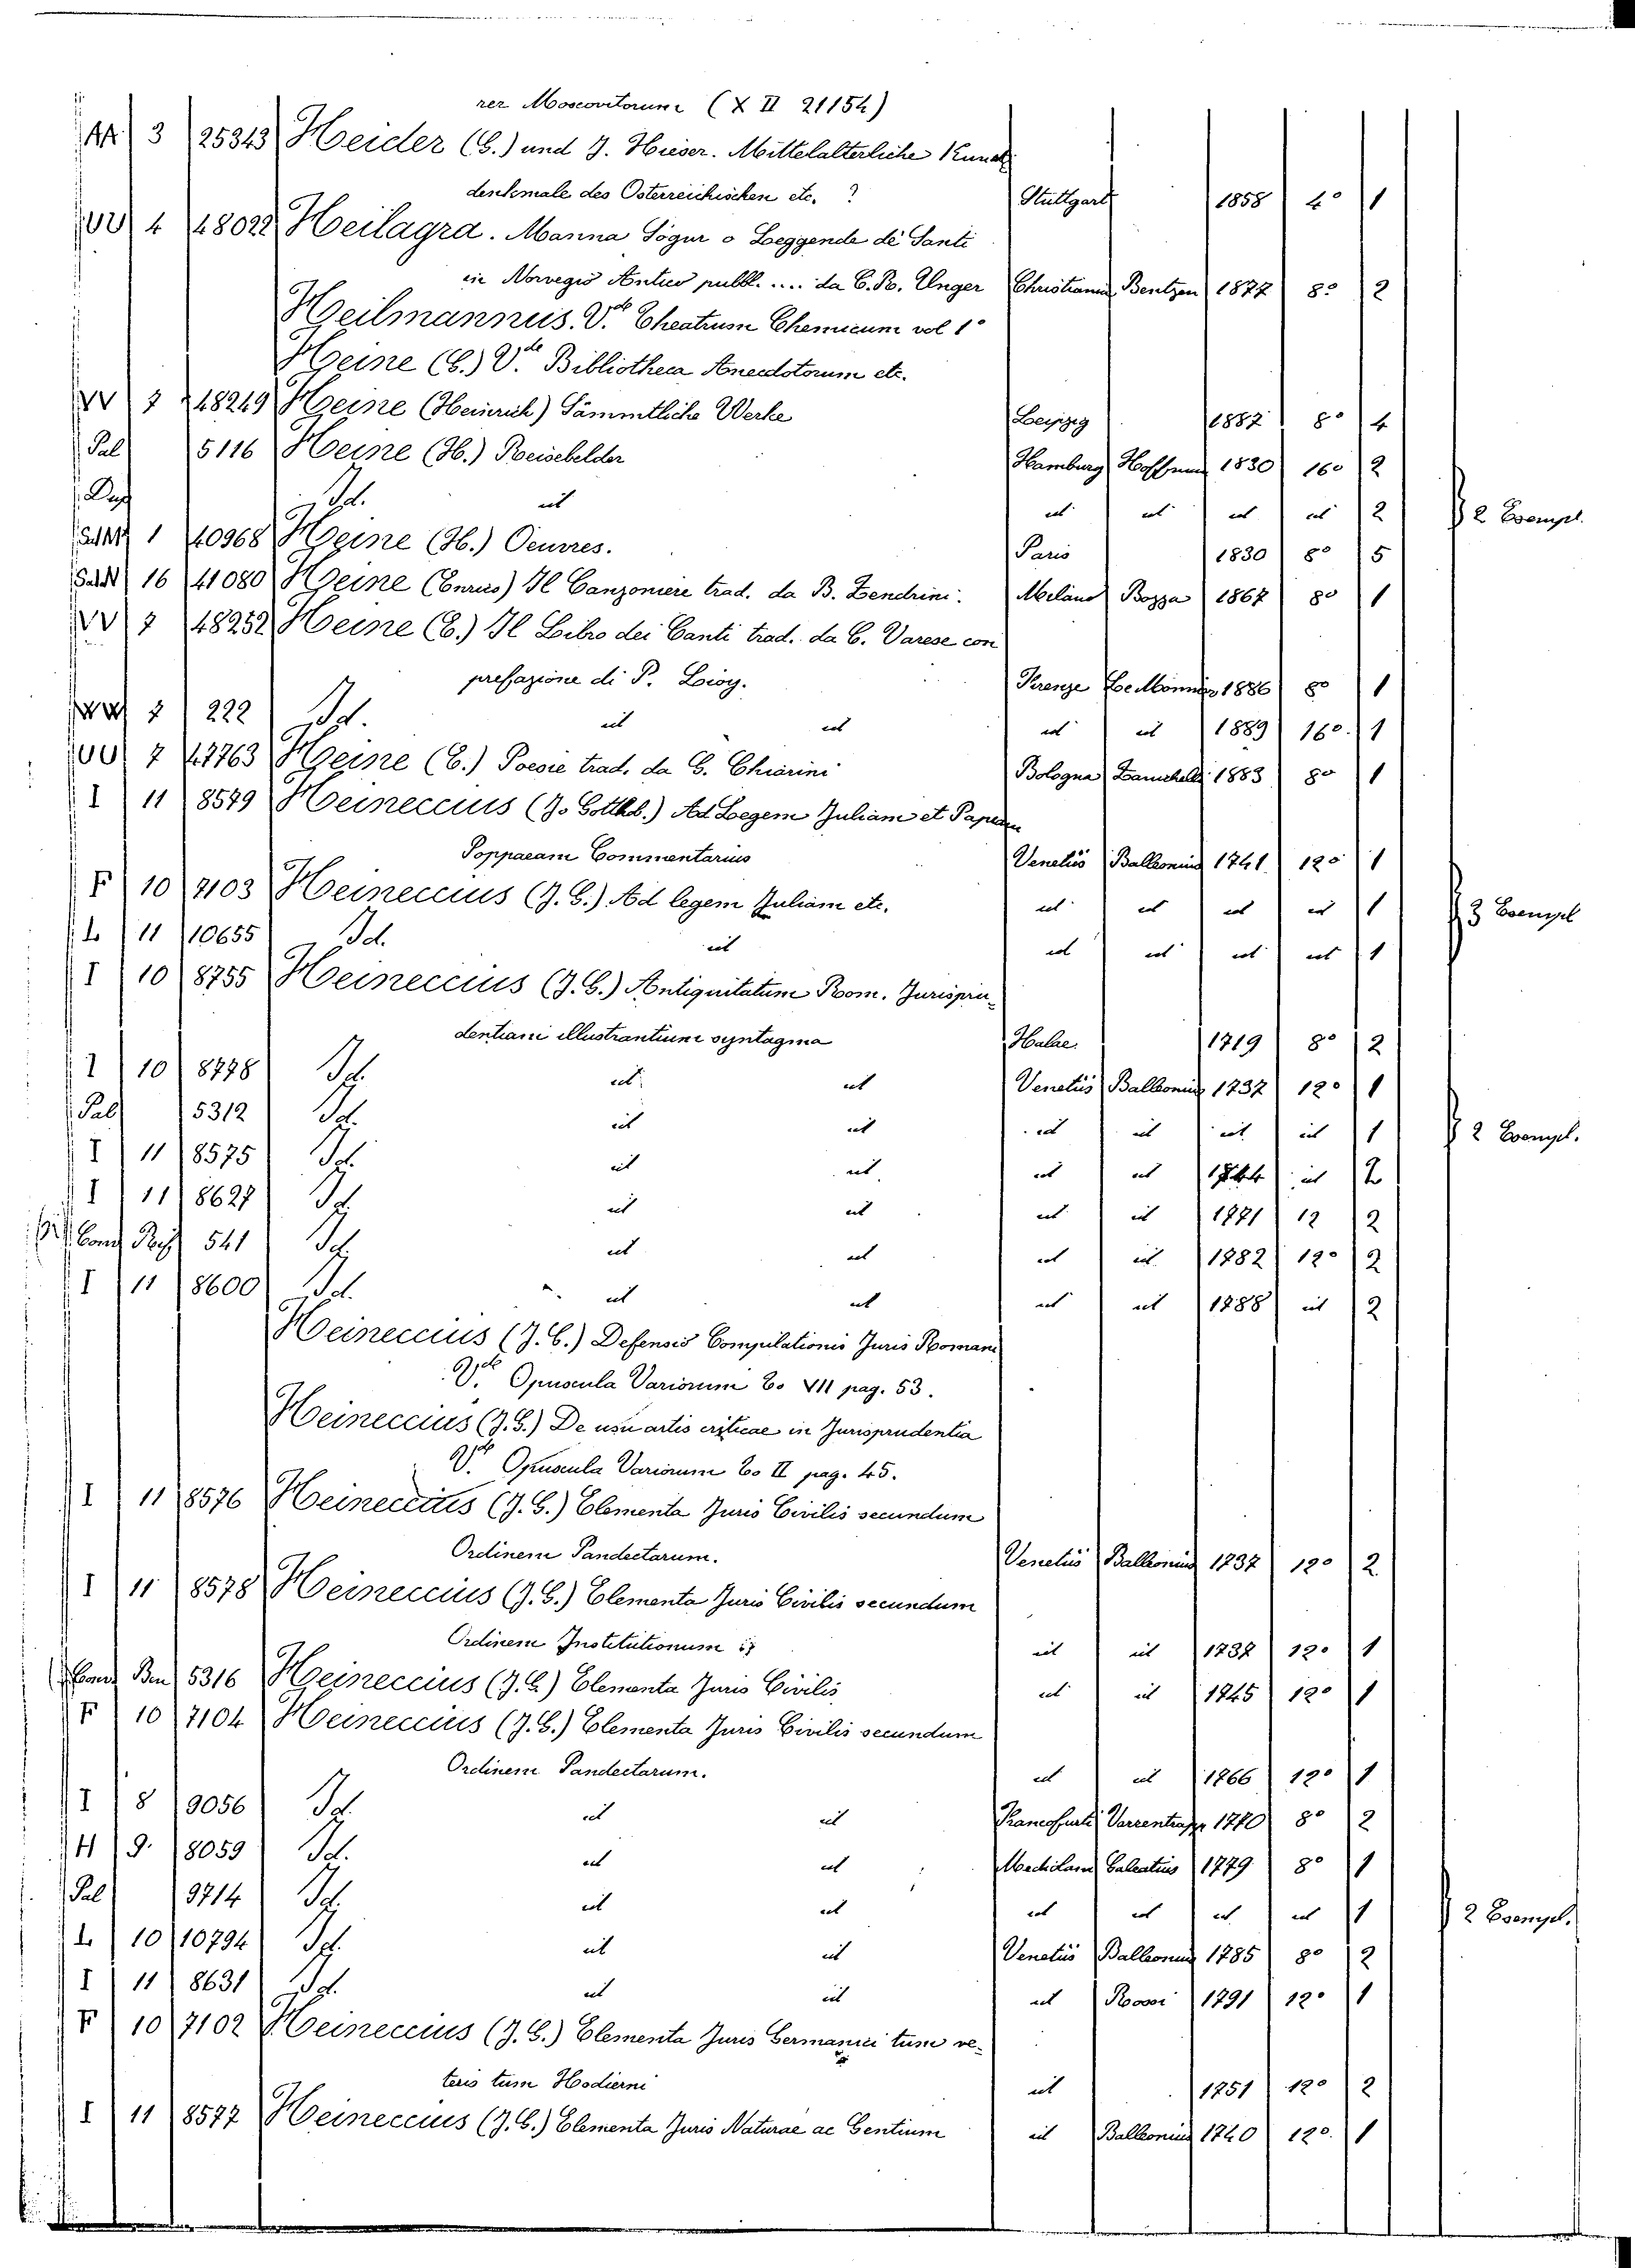 rer Moscovitarum (X II 21154)
AA 3 25343 Heider (G.) und J. Hieser. Mittelalterliche Kunst
denkmale des Osterreichischen etc. ? Stuttgart 1858 4° 1
UU 4 48022 Heilagra. Manna Sögur o Leggende dè Santi
in Norvegio Antico pubbl. .... da C. R. Unger Christiania Bentzen 1877 8° 2
Heilmannus. V.de Theatrum Chemicum vol 1°
Heine (G.) V.de Bibliotheca Anecdotorum etc.
VV 7 48249 Heine (Heinrich) Sämmtliche Werke Leipzig 1887 8° 4
Pal 5116 Heine (H.) Reisebelder Hamburg Hoffmann 1830 16° 2
Dup Id. ut ut ut ut ut 2 2 Esempl.
1 40968 Heine (H.) Oeuvres. Paris 1830 8° 5
16 41080 Heine (Enrico) Il Canzoniere trad. da B. Zendrini. Milano Bozza 1867 8° 1
VV 7 48252 Heine (E.) Il Libro dei Canti trad. da C. Varese con
prefazione di P. Lioy. Firenze Le Monnier 1886 8° 1
7 222 Id. ut ut ut ut 1889 16° 1
UU 7 47763 Heine (E.) Poesie trad. da G. Chiarini Bologna Zanichelli 1883 8° 1
I 11 8549 Heineccius (Jo Gottlb.) Ad Legem Juliam et Papiam
Poppaeam Commentarius Venetiis Balleonius 1741 12° 1
F 10 7103 Heineccius (J. G.) Ad legem Juliam etc. ut ut ut ut 1 3 Esempl
L 11 10655 Id. ut ut ut ut ut 1
I 10 8755 Heineccius (J. G.) Antiquitatum Rom. Jurispru-
dentiam illustrantium syntagma Halae. 1719 8° 2
I 10 8778 Id. ut ut Venetiis Balleonius 1737 12° 1
Pal 5312 Id. ut ut ut ut ut ut 1 2 Esempl.
I 11 8575 Id. ut ut ut ut ut 2
I 11 8627 Id. ut ut ut ut 1771 12 2
541 Id. ut ut ut ut 1782 12° 2
I 11 8600 Id. ut ut ut ut 1788 ut 2
Heineccius (J. G.) Defensio Compilationis Juris Romani
V.de Opuscula Variorum To VII pag. 53.
Heineccius (J. G.) De usu artis criticae in Jurisprudentia
V.de Opuscula Variorum To II pag. 45.
I 11 8576 Heineccius (J. G.) Elementa Juris Civilis secundum
Ordinem Pandectarum. Venetiis Balleonius 1737 12° 2
I 11 8578 Heineccius (J. G.) Elementa Juris Civilis secundum
Ordinem Institutionum ut ut 1738 12° 1
5316 Heineccius (J. G.) Elementa Juris Civilis ut ut 1745 12° 1
F 10 7104 Heineccius (J. G.) Elementa Juris Civilis secundum
Ordinem Pandectarum. ut ut 1766 12° 1
I 8 9056 Id. ut ut Francofurti Varrentrapp 1770 8° 2
H 9. 8059 Id. ut ut Mediolani Galeatius 1779 8° 1
Pal 9714 Id. ut ut ut ut ut ut 1 2 Esempl.
L 10 10794 Id. ut ut Venetiis Balleonius 1785 8° 2
I 11 8631 Id. ut ut ut Rossi 1791 12° 1
F 10 7102 Heineccius (J. G.) Elementa Juris Germanici tum ve-
teris tum Hodierni ut 1751 12° 2
I 11 8577 Heineccius (J. G.) Elementa Juris Naturae ac Gentium ut Balleonius 1740 12° 1